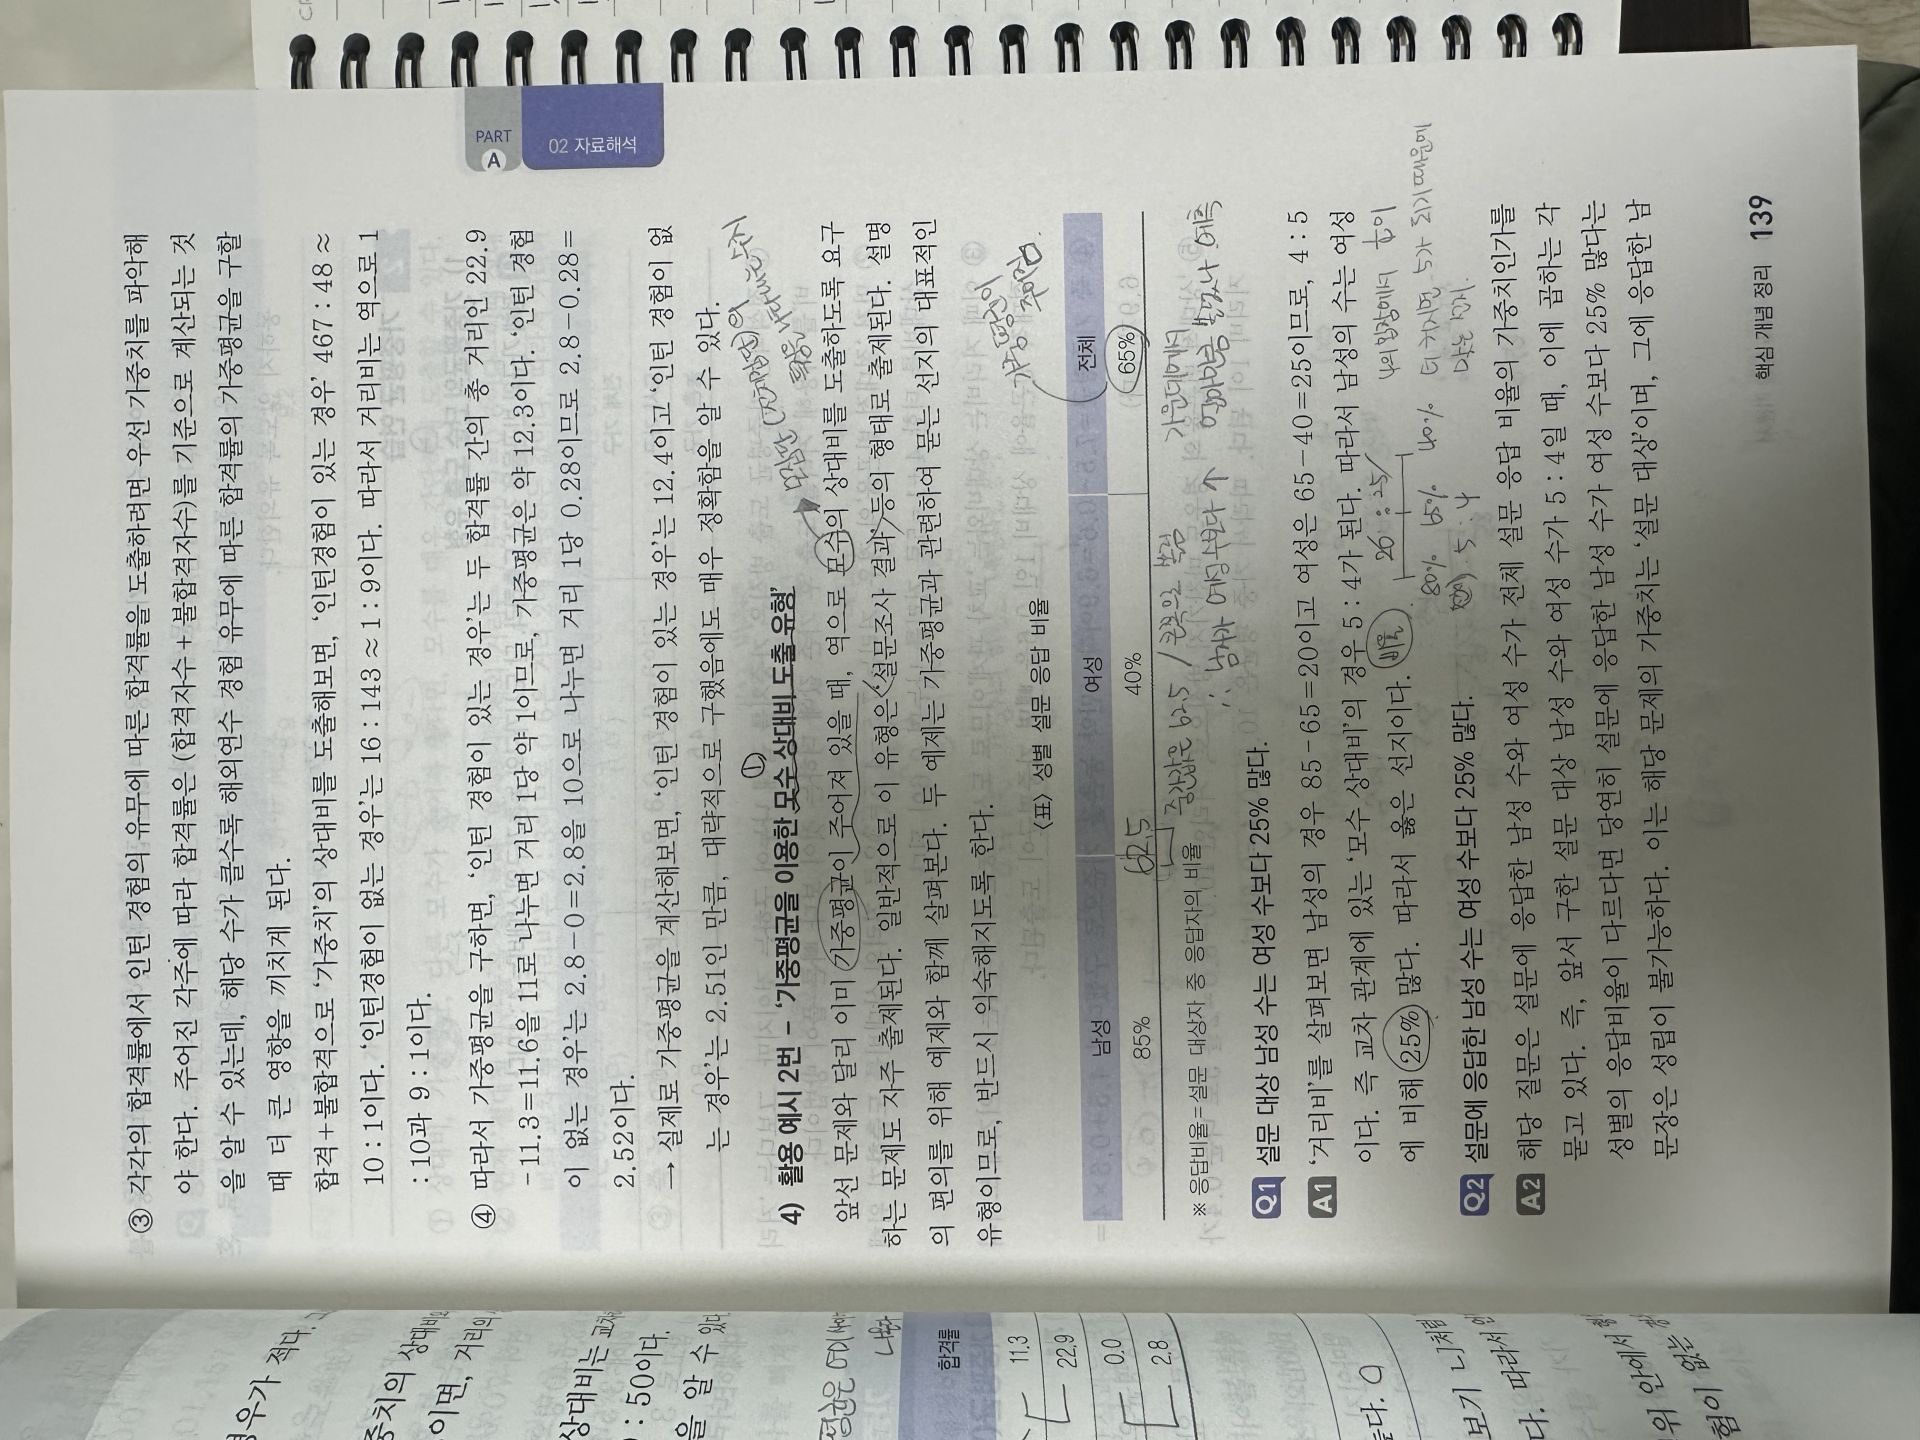 PART
A
02 자료해석
③ 각각의 합격률에서 인턴 경험의 유무에 따른 합격률을 도출하려면 우선 가중치를 파악해
야 한다. 주어진 각주에 따라 합격률은 (합격자수 + 불합격자수)를 기준으로 계산되는 것
을 알 수 있는데, 해당 수가 클수록 해외연수 경험 유무에 따른 합격률의 가중평균을 구할
때 더 큰 영향을 끼치게 된다.
합격+불합격으로 '가중치'의 상대비를 도출해보면, '인턴경험이 있는 경우' 467 : 48 ≈
10 : 1이다. '인턴경험이 없는 경우'는 16 : 143 ≈ 1 : 9이다. 따라서 거리비는 역으로 1
: 10과 9 : 1이다.
④ 따라서 가중평균을 구하면, '인턴 경험이 있는 경우'는 두 합격률 간의 총 거리인 22.9
-11.3=11.6을 11로 나누면 거리 1당 약 1이므로, 가중평균은 약 12.3이다. '인턴 경험
이 없는 경우'는 2.8-0=2.8을 10으로 나누면 거리 1당 0.28이므로 2.8-0.28=
2.52이다.
→ 실제로 가중평균을 계산해보면, '인턴 경험이 있는 경우'는 12.4이고 '인턴 경험이 없
는 경우'는 2.51인 만큼, 대략적으로 구했음에도 매우 정확함을 알 수 있다.
①
4) 활용 예시 2번 - '가중평균을 이용한 모수 상대비 도출 유형'
앞선 문제와 달리 이미 가중평균이 주어져 있을 때, 역으로 모수의 상대비를 도출하도록 요구
하는 문제도 자주 출제된다. 일반적으로 이 유형은 '설문조사 결과' 등의 형태로 출제된다. 설명
의 편의를 위해 예제와 함께 살펴본다. 두 예제는 가중평균과 관련하여 묻는 선지의 대표적인
유형이므로, 반드시 익숙해지도록 한다.
가중평균이
주어짐.
〈표〉 성별 설문 응답 비율
남성 여성 전체
85% 40% 65%
62.5
※ 응답비율=설문 대상자 중 응답자의 비율
중간값은 62.5 / 큰쪽으로 쏠림
가운데에서
∴ 남자 여성보다 ↑
Q1 설문 대상 남성 수는 여성 수보다 25% 많다.
A1 '거리비'를 살펴보면 남성의 경우 85-65=20이고 여성은 65-40=25이므로, 4 : 5
이다. 즉 교차 관계에 있는 '모수 상대비'의 경우 5 : 4가 된다. 따라서 남성의 수는 여성
에 비해 25% 많다. 따라서 옳은 선지이다.
비율
20 : 25
85% 65% 40%
5 : 4
4의 입장에서 1이
더 커지면 5가 되기 때문에
맞는 선지.
Q2 설문에 응답한 남성 수는 여성 수보다 25% 많다.
A2 해당 질문은 설문에 응답한 남성 수와 여성 수가 전체 설문 응답 비율의 가중치인가를
묻고 있다. 즉, 앞서 구한 설문 대상 남성 수와 여성 수가 5 : 4일 때, 이에 곱하는 각
성별의 응답비율이 다르다면 당연히 설문에 응답한 남성 수가 여성 수보다 25% 많다는
문장은 성립이 불가능하다. 이는 해당 문제의 가중치는 '설문 대상'이며, 그에 응답한 남
핵심 개념 정리 139
합격률
11.3
22.9
0.0
2.8